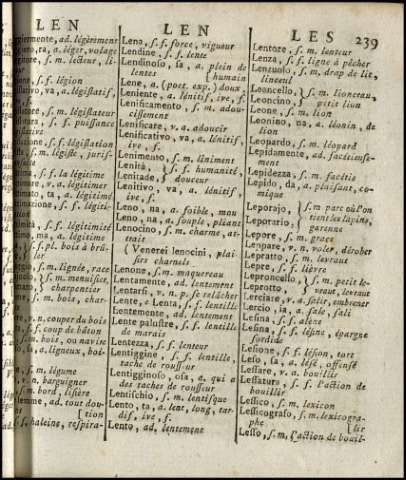 LEN LEN LES 239
giermente, ad. légèrement
ro, ra, a. léger, volage
s. m. lecteur, li-
s. f. légion
ivo, va, a. législatif,
s. m. législateur
s. f. puissance
législative
s. f. législation
s. m. légiste, juris-
s. f. la légitime
v. a. légitimer
ta, a. légitimé
s. f. légiti-
s. f. légitimité
ma, a. légitime
s. f. pl. bois à brû-
ler
s. m. lignée, race
s. m. menuisier,
charpentier
s. m. bois, char-
v. n. couper du bois
s. f. coup de bâton
s. m. bois, ou navire
sa, a. ligneux, boi-
s. m. légume
v. n. barguigner
s. m. bord, lisière
ad. tout dou-
[tion
s. f. haleine, respira-
Lena, s. f. force, vigueur
Lendine, s. f. lente
Lendinoso, sa, a. plein de
lentes [humain
Lene, a. (poet. exp.) doux,
Leniente, a. lénitif, ive, f.
Lenificamento, s. m. adou-
cissement
Lenificare, v. a. adoucir
Lenificativo, va, a. lénitif,
ive, f.
Lenimento, s. m. liniment
Lenità, } s. f. humanité,
Lenitade, } douceur
Lenitivo, va, a. lénitif,
ive, f.
Leno, na, a. foible, mou
Leno, na, a. souple, pliant
Lenocino, s. m. charme, at-
trait
{ Venerei lenocini, plai-
sirs charnels
Lenone, s. m. maquereau
Lentamente, ad. lentement
Lentarsi, v. n. p. se relâcher
Lente, e Lenta, s. f. lentille
Lentemente, ad. lentement
Lente palustre, s. f. lentille
de marais
Lentezza, s. f. lenteur
Lentiggine, s. f. lentille,
tache de rousseur
Lentigginoso, osa, a. qui a
des taches de rousseur
Lentischio, s. m. lentisque
Lento, ta, a. lent, long, tar-
dif, ive, f.
Lento, ad. lentement
Lentore, s. m. lenteur
Lenza, s. f. ligne à pêcher
Lenzuolo, s. m. drap de lit,
linceuil
Leoncello, } s. m. lionceau,
Leoncino, } petit lion
Leone, s. m. lion
Leonino, na, a. léonin, de
lion
Leopardo, s. m. léopard
Lepidamente, ad. facétieuse-
ment
Lepidezza, s. m. facétie
Lepido, da, a. plaisant, co-
mique
Leporajo, } s. m. parc où l'on
tient les lapins,
Leporario, } garenne
Lepore, s. m. grace
Leppare, v. n. voler, dérober
Lepratto, s. m. levraut
Lepre, s. f. lièvre
Leproncello, } s. m. petit le-
Leprotto, } vraut, levraut
Lerciare, v. a. salir, embrener
Lercio, ia, a. sale, sali
Lesina, s. f. alène
Lesina, s. f. lésine, épargne
sordide
Lesione, s. f. lésion, tort
Leso, sa, a. lésé, offensé
Lessare, v. a. bouillir
Lessatura, s. f. l'action de
bouillir
Lessico, s. m. lexicon
Lessicografo, s. m. lexicogra-
phe [lir
Lesso, s. m. l'action de bouil-